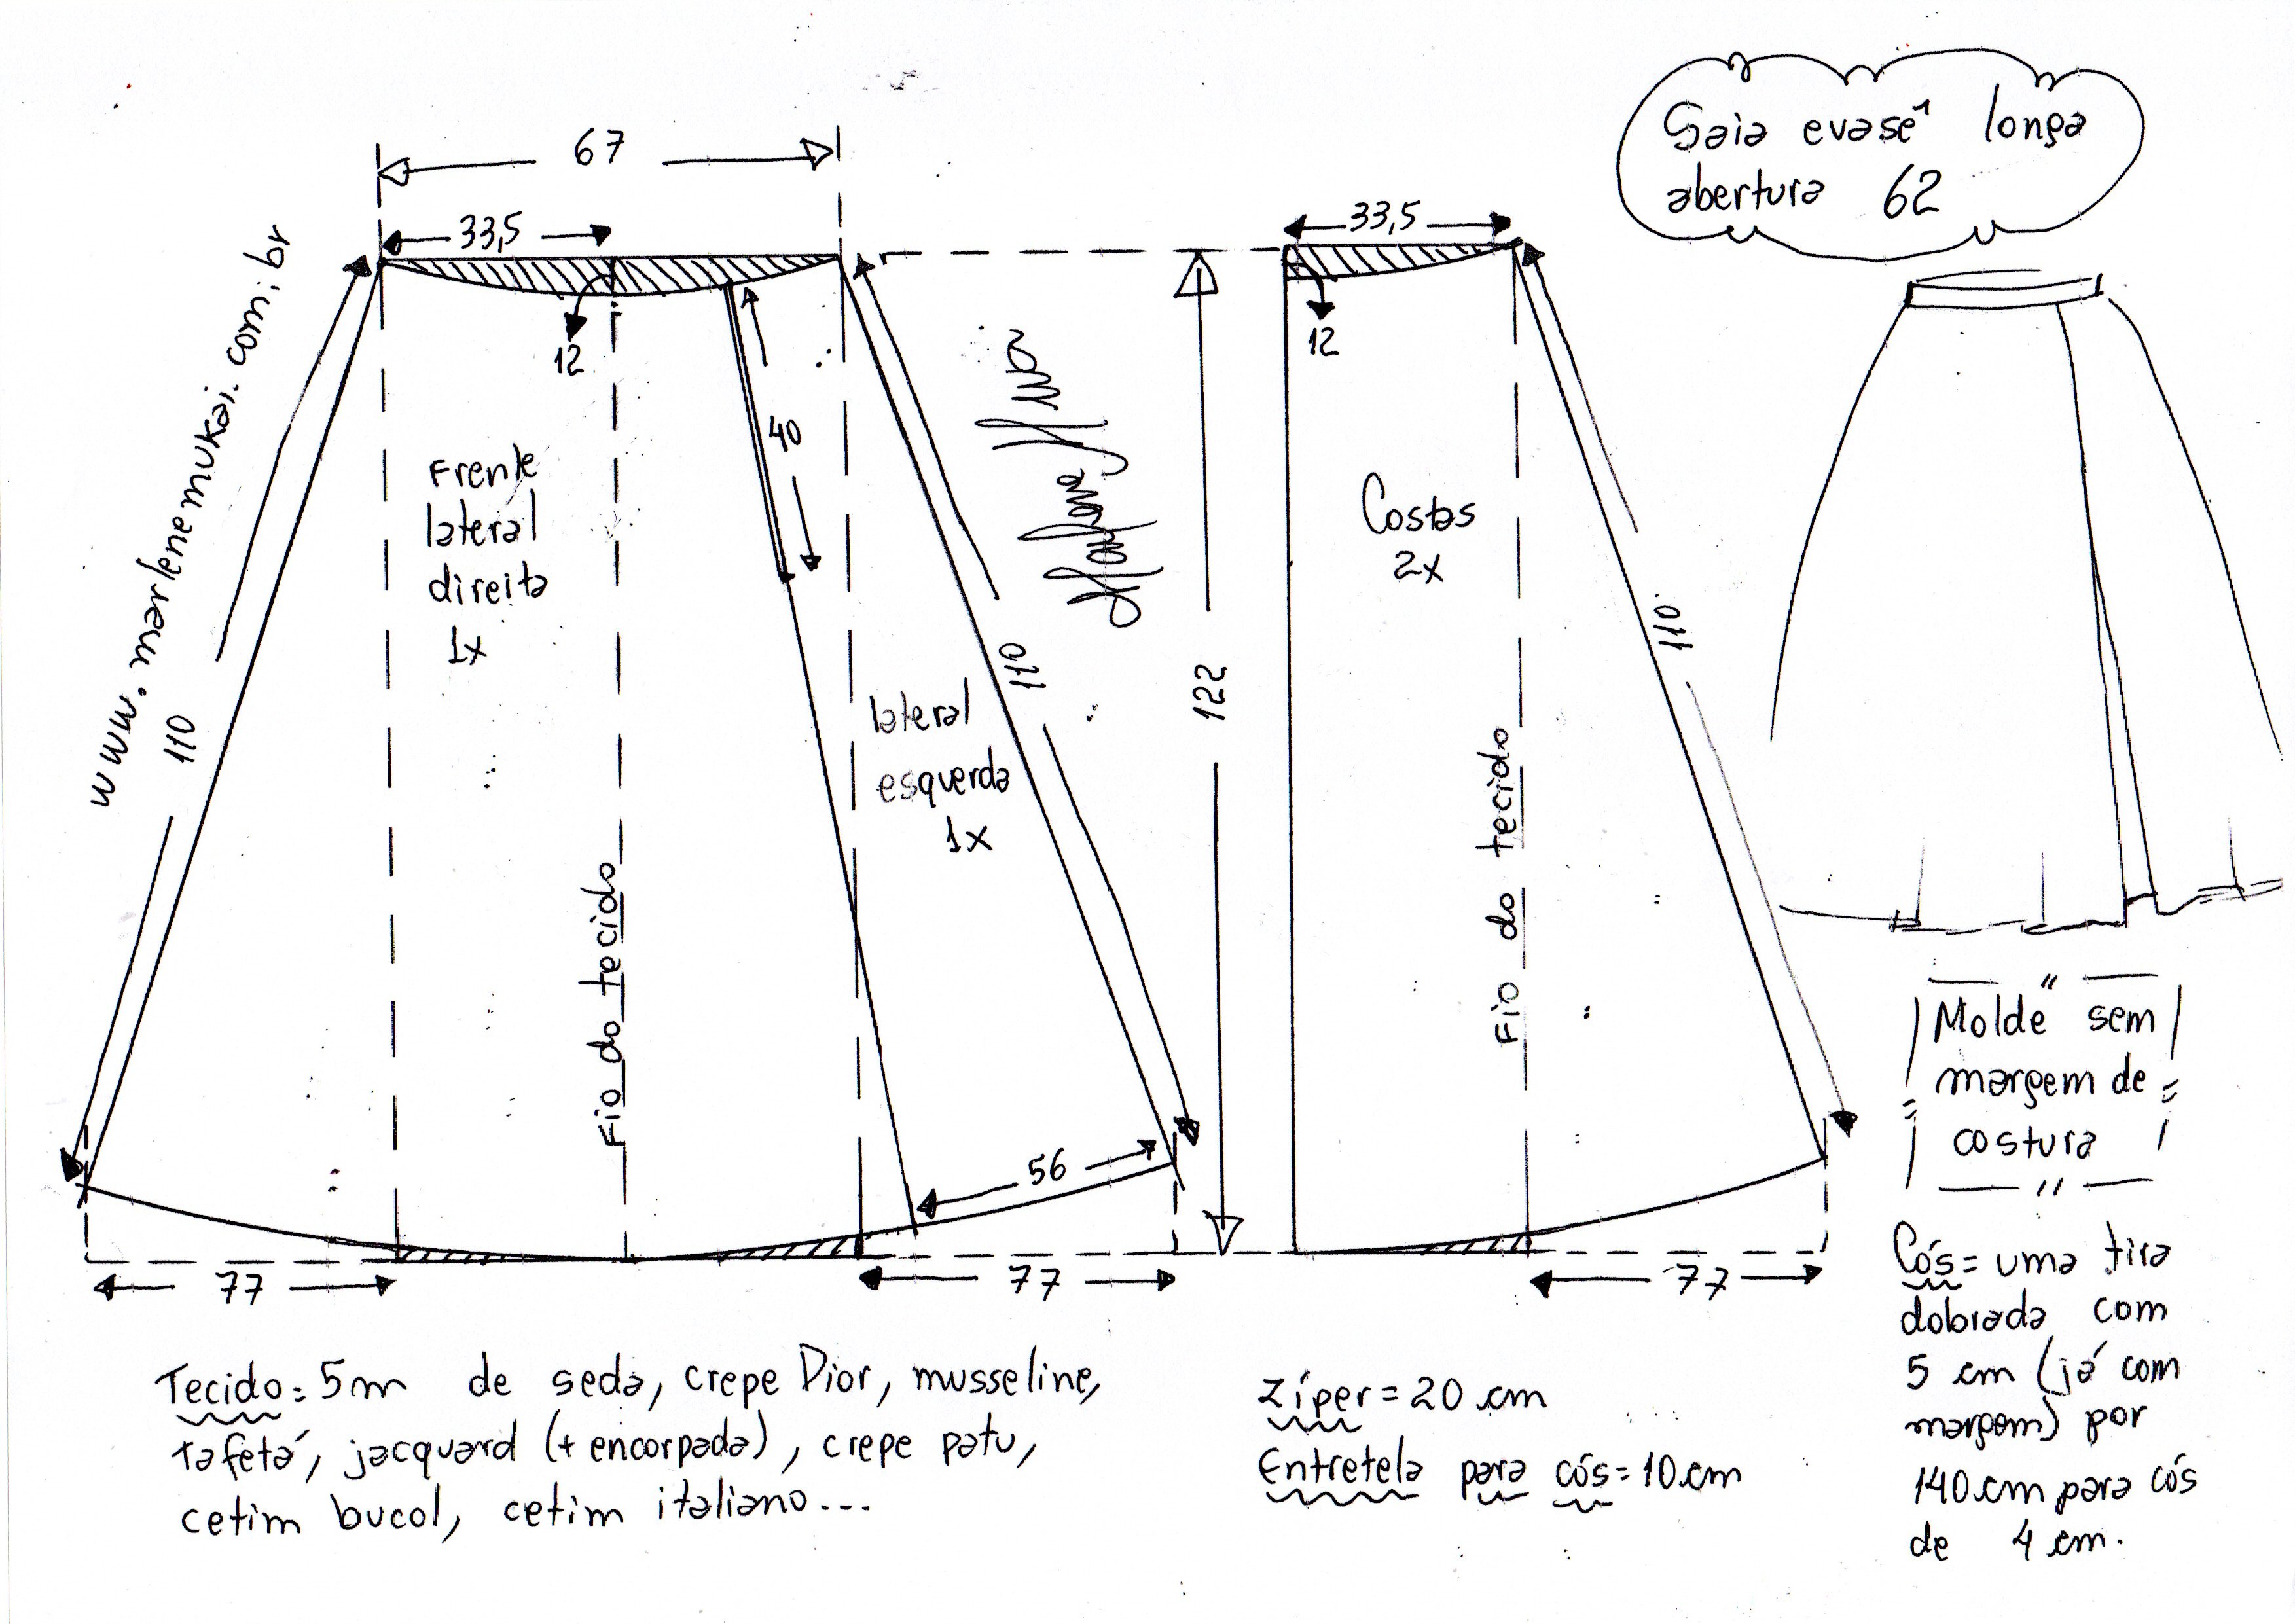 Saia evasê longa
abertura 62
67
33,5
33,5
12
12
www.marlenemukai.com.br
40
Frente
lateral
direita
1x
Costas
2x
110
110
110
122
lateral
esquerda
1x
Fio do tecido
Fio do tecido
56
77
77
77
"Molde sem
margem de
costura
"
Cós = uma tira
dobrada com
5 cm (já com
margem) por
140 cm para cós
de 4 cm.
Tecido: 5m de seda, crepe Dior, musseline,
tafetá, jacquard (+ encorpada), crepe patu,
cetim bucol, cetim italiano...
Zíper = 20 cm
Entretela para cós = 10 cm